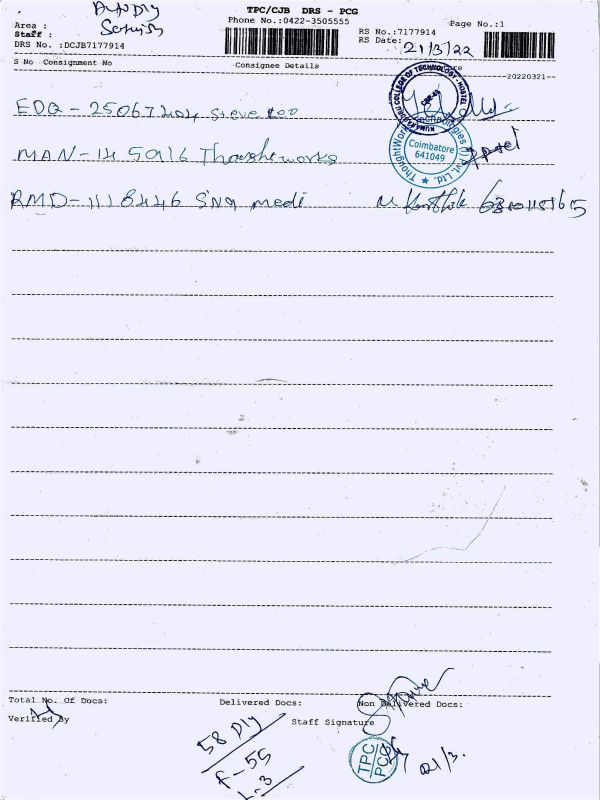 TPC/CJB DRS - PCG
Phone No.:0422-3505555
Page No.:1
Area :
Staff :
RS No.:7177914
RS Date: 21/3/22
DRS No. :DCJB7177914
S No Consignment No
Consignee Details
--20220321--
EDQ - 25067204 Steve
KUMARAGURU COLLEGE OF TECHNOLOGY HOSTEL
MAN - 145916 Thoughtworks
ThoughtWorks Technologies Pvt. Ltd.
Coimbatore
641049
RMD - 1118446 SNQ medi
Total No. Of Docs:
Delivered Docs:
Non Delivered Docs:
Verified By
Staff Signature
58 Dly
F - 55
L - 3
TPC
PCG
21/3.